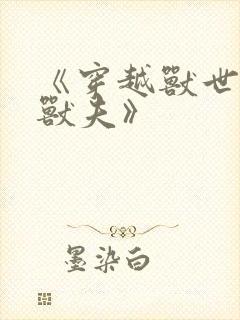 《穿越獸世
獸夫》
墨染白